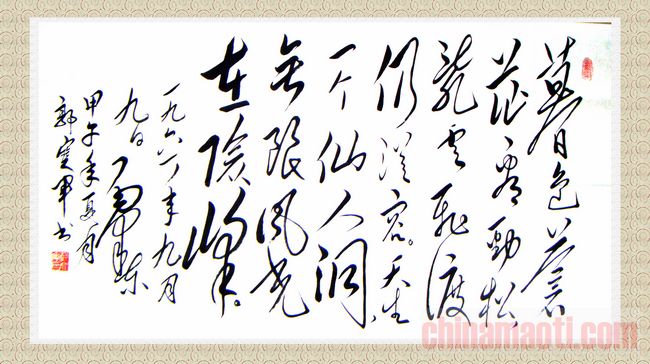 暮色蒼
茫看劲松
乱云飛渡
仍從容。天生
一个仙人洞,
无限风光
在险峰。
一九六一年九月
九日 毛泽东
甲午年夏月
郭 军书
chinamaoti.com